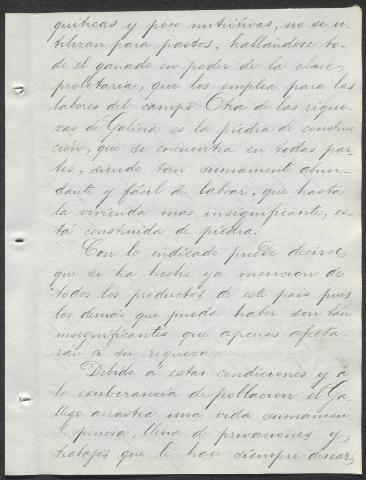 quíticas y poco nutritivas, no se u-
tilizan para pastos, hallándose to-
do el ganado en poder de la clase
proletaria, que los emplea para las
labores del campo. Otra de las rique-
zas de Galicia es la piedra de construc-
ción, que se encuentra en todas par-
tes, siendo tan sumamente abun-
dante y fácil de labrar, que hasta
la vivienda mas insignificante, es-
tá construida de piedra.
Con lo indicado puede decirse,
que se ha hecho ya mencion de
todos los productos de este pais pues
los demás que pueda haber son tan
insignificantes que apenas afecta-
rán á su riqueza.
Debido á estas condiciones y á
la exuberancia de poblacion el Ga-
llego arrastra una vida sumamen-
te penosa, llena de privaciones y
trabajos que le hace siempre desear,